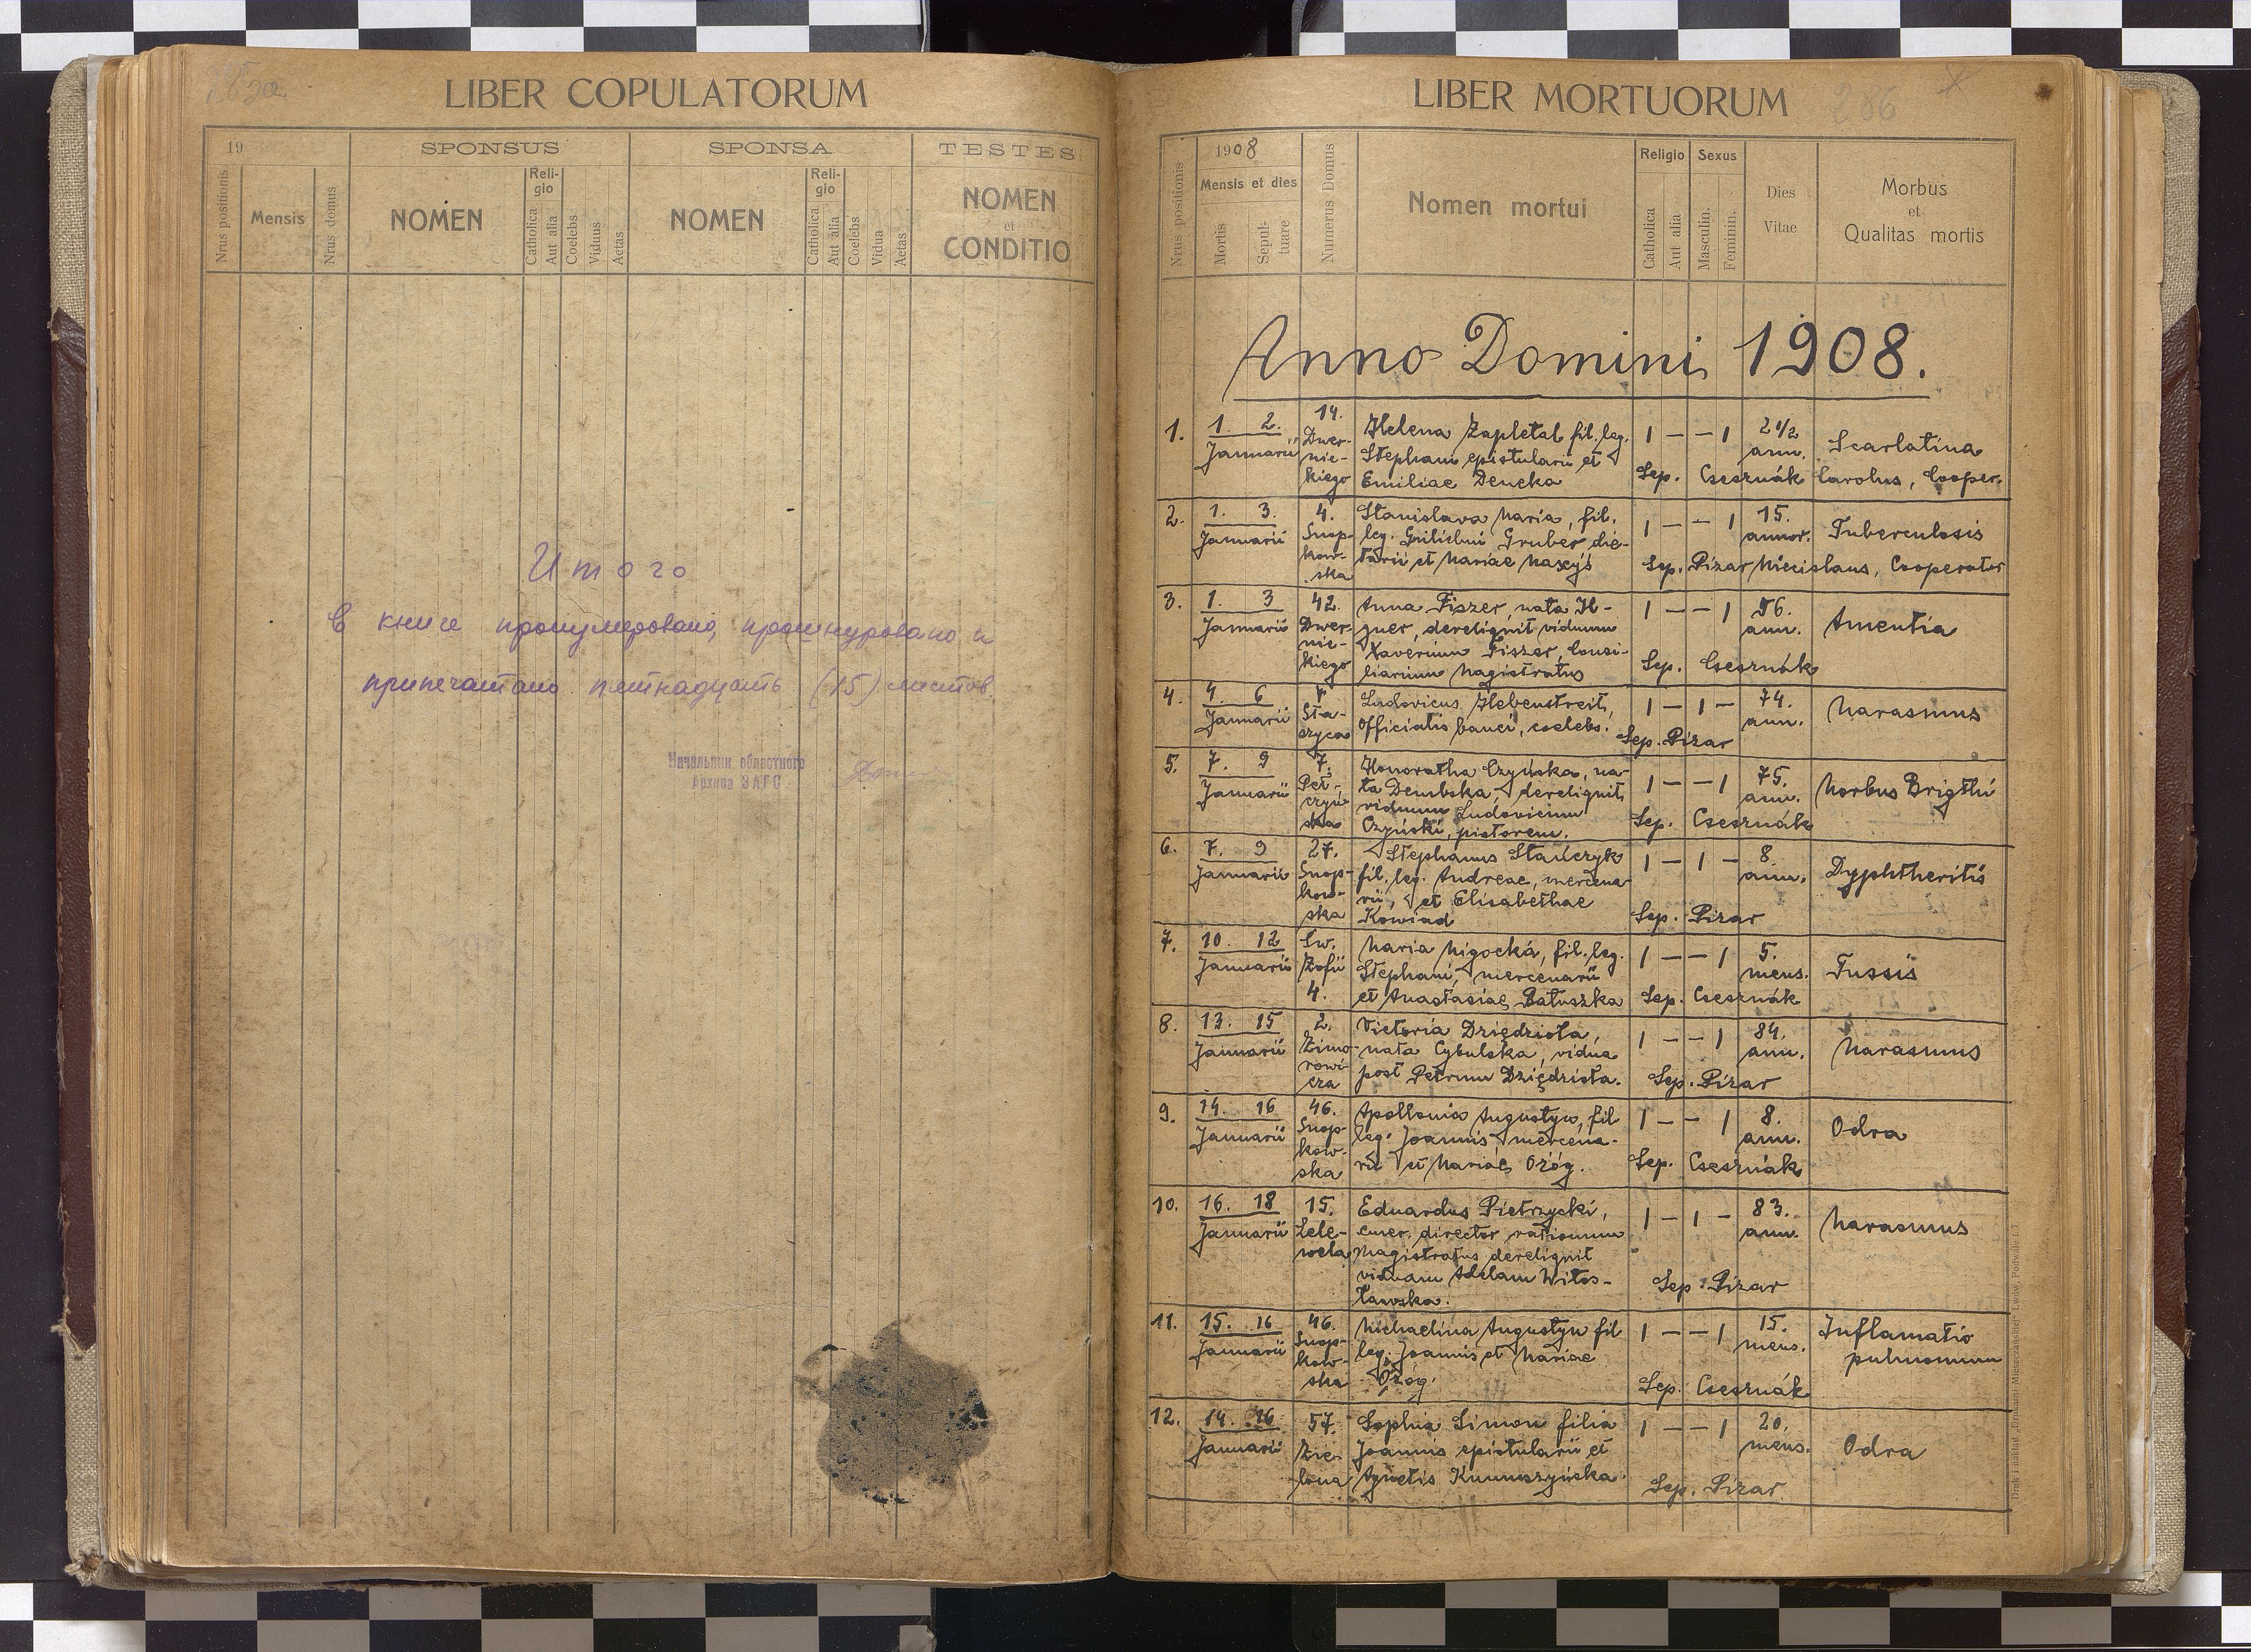 LIBER COPULATORUM
19
SPONSUS
SPONSA
TESTES
Nrus positionis
Mensis
Nrus domus
NOMEN
Religio
Catholica
Aut alia
Coelebs
Viduus
Aetas
NOMEN
Religio
Catholica
Aut alia
Coelebs
Vidua
Aetas
NOMEN
et
CONDITIO
Итого
В книге пронумеровано, прошнуровано и
припечатано пятнадцать (15) листов.
Начальник областного
Архива ЗАГС
LIBER MORTUORUM
286
Nrus positionis
1908
Mensis et dies
Mortis
Sepul-
tuare
Numerus Domus
Nomen mortui
Religio
Catholica
Aut alia
Sexus
Masculin.
Feminin.
Dies
Vitae
Morbus
et
Qualitas mortis
Anno Domini 1908.
1. 1. 2. Januarii 14. Dwer-
nic-
kiego
Helena Zapletal fil. leg.
Stephani epistularii et
Emiliae Deneka
1 — — 1 2 1/2 ann. Scarlatina
Sep. Csesznák Carolus, Cooper.
2. 1. 3. Januarii 4. Snop-
kow-
ska
Stanislava Maria, fil.
leg. Gruber die-
tarii et Mariae
1 — — 1 15. annor. Tuberculosis
Sep. Pizar Miecislaus, Cooperator
3. 1. 3 Januarii 42. Dwer-
nic-
kiego
Anna Fiszer, nata Il-
gner, dereliquit viduum
Xaverium Fiszer, consi-
liarium Magistratus
1 — — 1 56. ann. Amentia
Sep. Csesznák
4. 4. 6 Januarii Sta-
szyca
Ludovicus Hebenstreit,
officialis banci, coelebs.
1 — 1 — 74. ann. Marasmus
Sep. Pizar
5. 7. 9 Januarii 7. Peł-
czyń-
ska
Honoratha Czyńska, na-
ta Dembska dereliquit
viduum Ludovicum
Czyński, pistorem.
1 — — 1 75. ann. Morbus Brigthii
Sep. Csesznák
6. 7. 9 Januarii 27. Snop-
kow-
ska
Stephanus Stańczyk
fil. leg. Andreae, mercena-
rii, et Elisabethae
Kowiad
1 — 1 — 8. ann. Dyphtheritis
Sep. Pizar
7. 10. 12 Januarii Św.
Zofii
4.
Maria Migocká, fil. leg.
Stephani, mercenarii
et Anastasiae Batuszka
1 — — 1 5. mens. Tussis
Sep. Csesznák
8. 13. 15 Januarii 2. Zimo-
rowi-
cza
Victoria Dzięдzioła,
nata Cybulska, vidua
post Petrum Dzięдzioła.
1 — — 1 84. ann. Marasmus
Sep. Pizar
9. 14. 16 Januarii 46. Snop-
kow-
ska
Apollonia Augustyn, fil
leg. Joannis mercena-
rii et Mariae Ożóg.
1 — — 1 8. ann. Odra
Sep. Csesznák
10. 16. 18 Januarii 15. Lele-
wela
Eduardus Pietrzycki,
emer. director rationum
Magistratus dereliquit
viduam Adelam Witos-
ławska.
1 — 1 — 83. ann. Marasmus
Sep. Pizar
11. 15. 16 Januarii 46. Snop-
kow-
ska
Michaelina Augustyn fil
leg. Joannis et Mariae
Ożóg.
1 — — 1 15. mens. Inflamatio
pulmonum
Sep. Csesznák
12. 14. 16 Januarii 57. Zie-
lona
Sophia Simon filia
Joannis epistularii et
Agnetis
1 — — 1 20. mens. Odra
Sep. Pizar